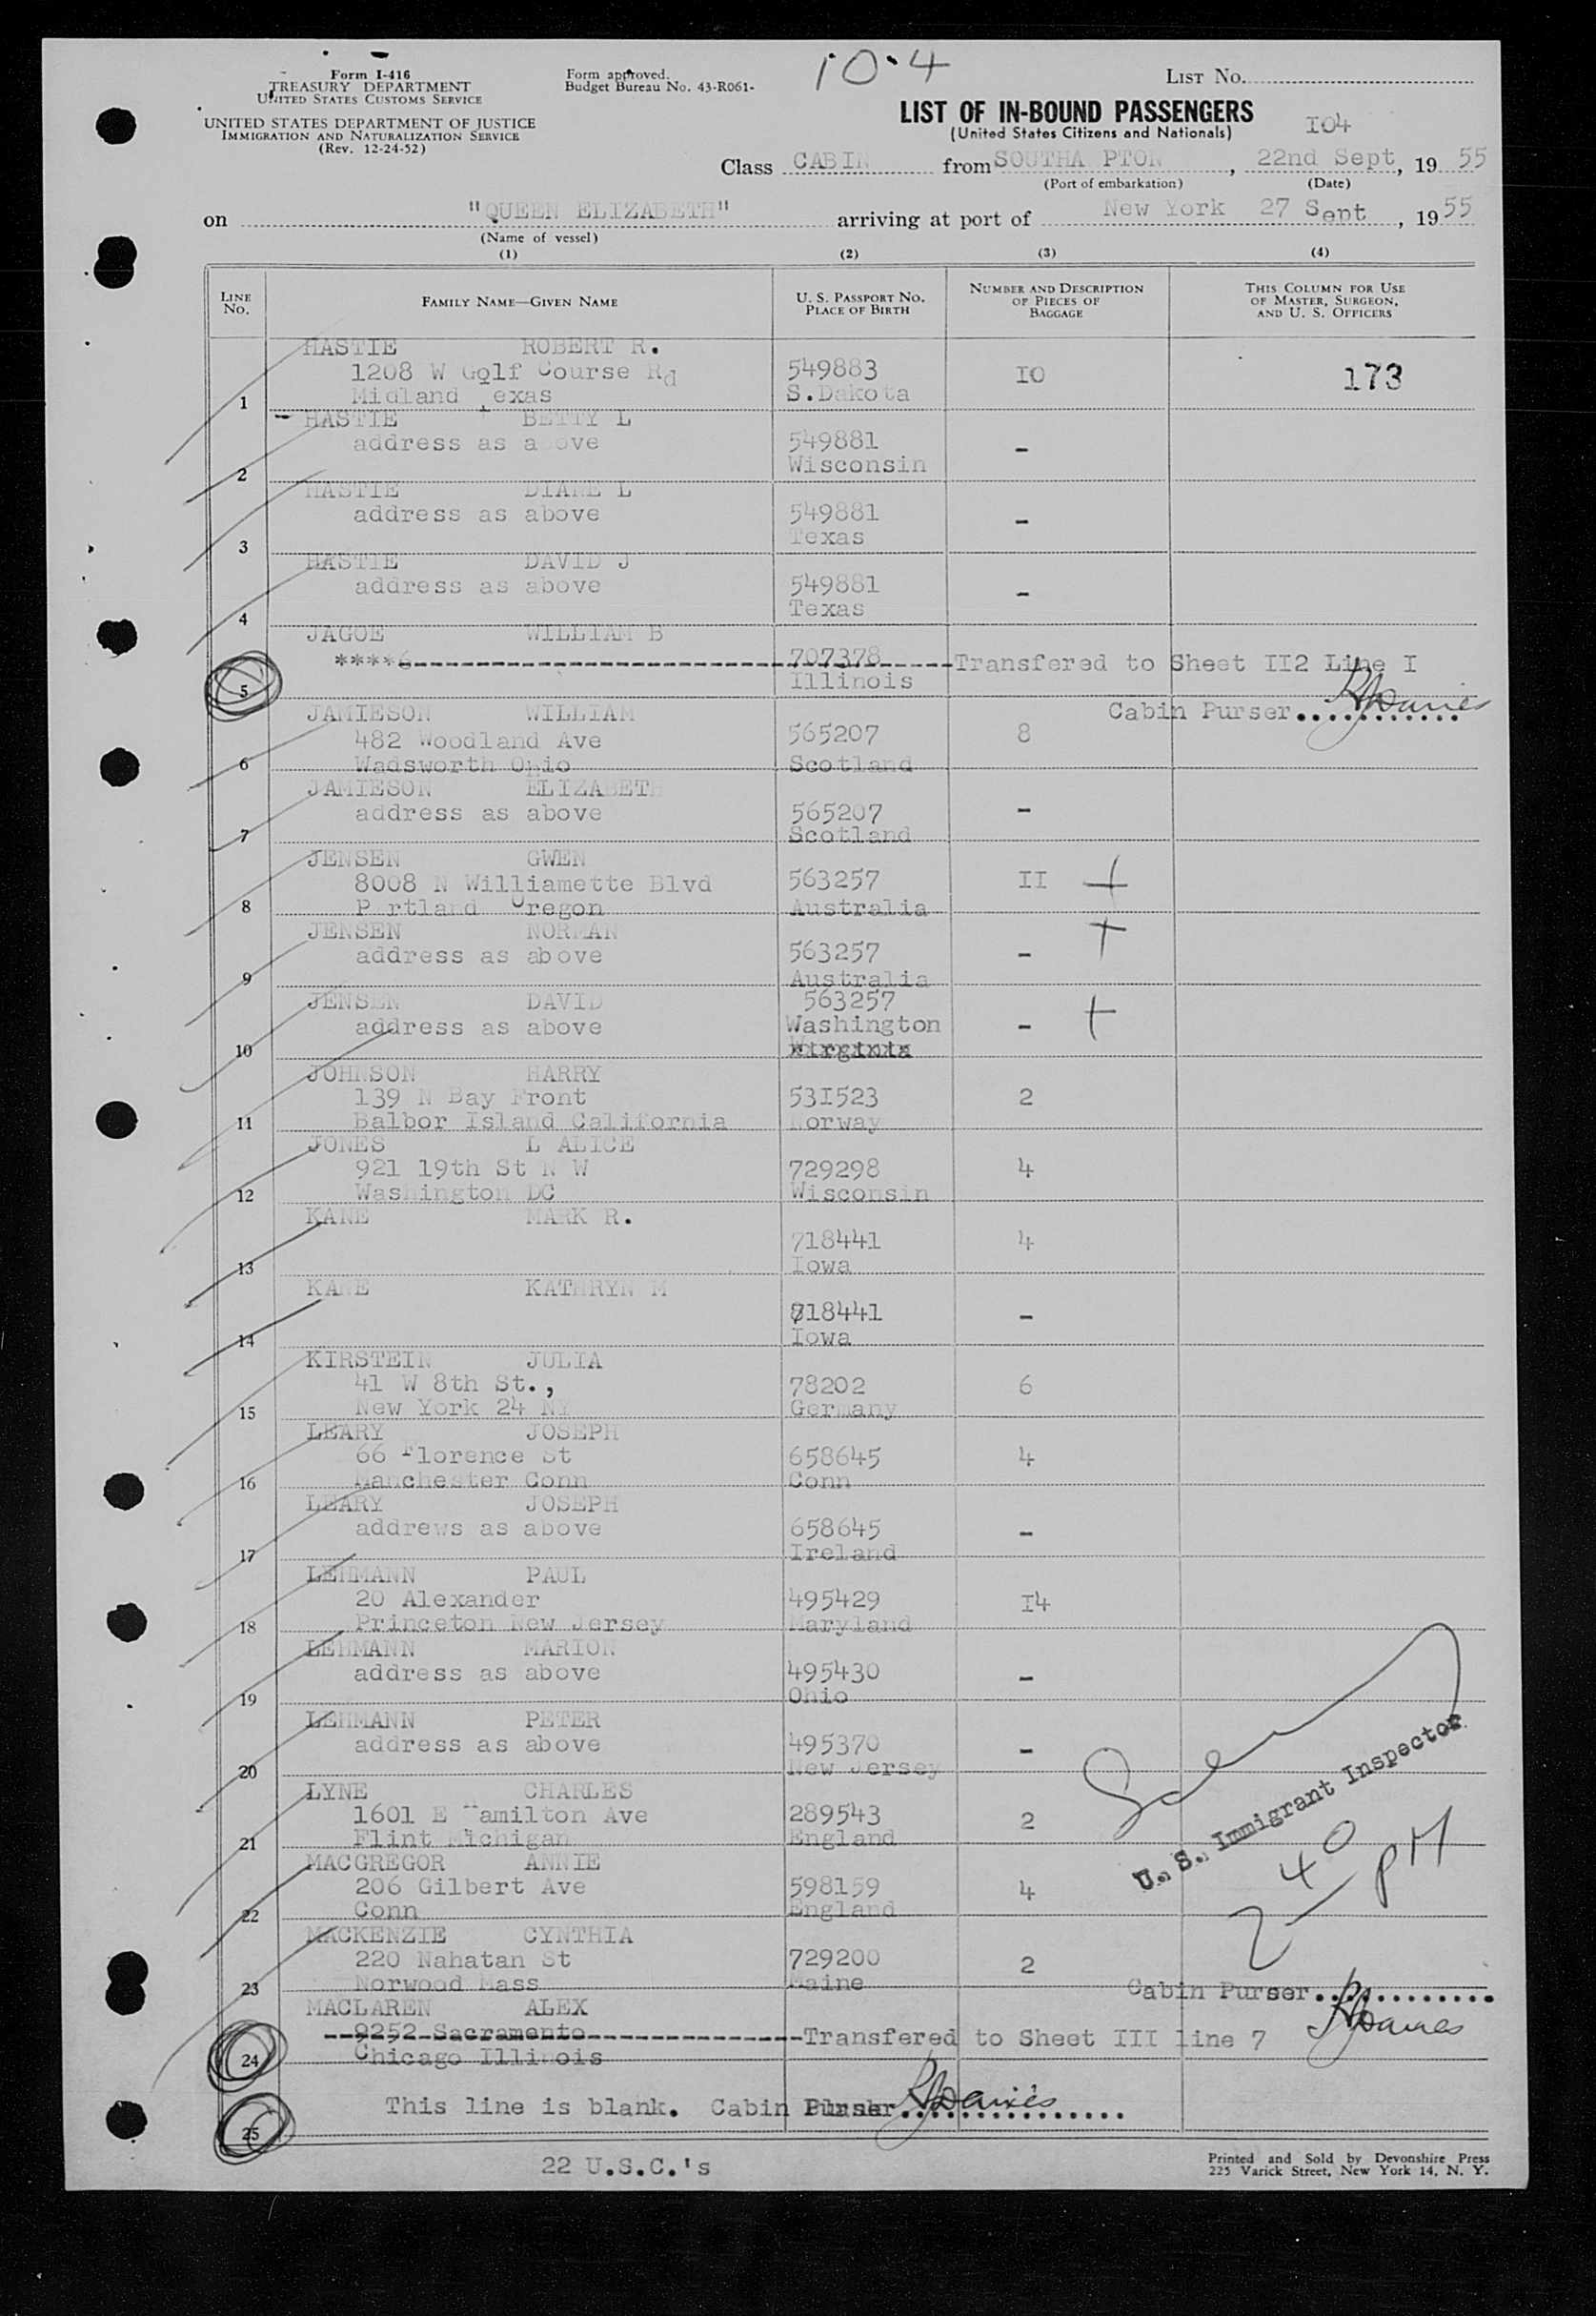 Form I-416
TREASURY DEPARTMENT
UNITED STATES CUSTOMS SERVICE
UNITED STATES DEPARTMENT OF JUSTICE
IMMIGRATION AND NATURALIZATION SERVICE
(Rev. 12-24-52)
Form approved.
Budget Bureau No. 43-R061-
10-4
LIST No.
LIST OF IN-BOUND PASSENGERS
(United States Citizens and Nationals)
I04
Class CABIN from SOUTHA PTON, 22nd Sept, 19 55
(Port of embarkation) (Date)
on "QUEEN ELIZABETH" arriving at port of New York 27 Sept, 19 55
(Name of vessel)
(1) (2) (3) (4)
LINE No. FAMILY NAME—GIVEN NAME U. S. PASSPORT No. PLACE OF BIRTH NUMBER AND DESCRIPTION OF PIECES OF BAGGAGE THIS COLUMN FOR USE OF MASTER, SURGEON, AND U. S. OFFICERS
HASTIE ROBERT R.
1208 W Golf Course Rd 549883 IO 173
1 Midland Texas S.Dakota
- HASTIE BETTY L
address as a ove 549881 -
2 Wisconsin
HASTIE DIANE L
address as above 549881 -
3 Texas
HASTIE DAVID J
address as above 549881 -
4 Texas
JAGOE WILLIAM B
****6---707378---Transfered to Sheet II2 Line I
5 Illinois
Cabin Purser RJDavies
JAMIESON WILLIAM
482 Woodland Ave 565207 8
6 Wadsworth Ohio Scotland
JAMIESON ELIZABETH
address as above 565207 -
7 Scotland
JENSEN GWEN
8008 N Williamette Blvd 563257 II +
8 Portland Oregon Australia
JENSEN NORMAN
address as above 563257 - +
9 Australia
JENSEN DAVID 563257
address as above Washington - +
10 Virginia
JOHNSON HARRY
139 N Bay Front 53I523 2
11 Balbor Island California Norway
JONES L ALICE
921 19th St N W 729298 4
12 Washington DC Wisconsin
KANE MARK R.
718441 4
13 Iowa
KANE KATHRYN M
718441 -
14 Iowa
KIRSTEIN JULIA
41 W 8th St., 78202 6
15 New York 24 NY Germany
LEARY JOSEPH
66 Florence St 658645 4
16 Manchester Conn Conn
LEARY JOSEPH
addrews as above 658645 -
17 Ireland
LEHMANN PAUL
20 Alexander 495429 I4
18 Princeton New Jersey Maryland
LEHMANN MARION
address as above 495430 -
19 Ohio
LEHMANN PETER
address as above 495370 -
20 New Jersey
LYNE CHARLES
1601 E Hamilton Ave 289543 2
21 Flint Michigan England
U. S. Immigrant Inspector
2 40 PM
MACGREGOR ANNIE
206 Gilbert Ave 598159 4
22 Conn England
MACKENZIE CYNTHIA
220 Nahatan St 729200 2
23 Norwood Mass Maine
Cabin Purser RJDavies
MACLAREN ALEX
--9252 Sacramento---Transfered to Sheet III line 7
24 Chicago Illinois
25 This line is blank. Cabin Purser RJDavies
22 U.S.C.'s
Printed and Sold by Devonshire Press
225 Varick Street, New York 14, N. Y.